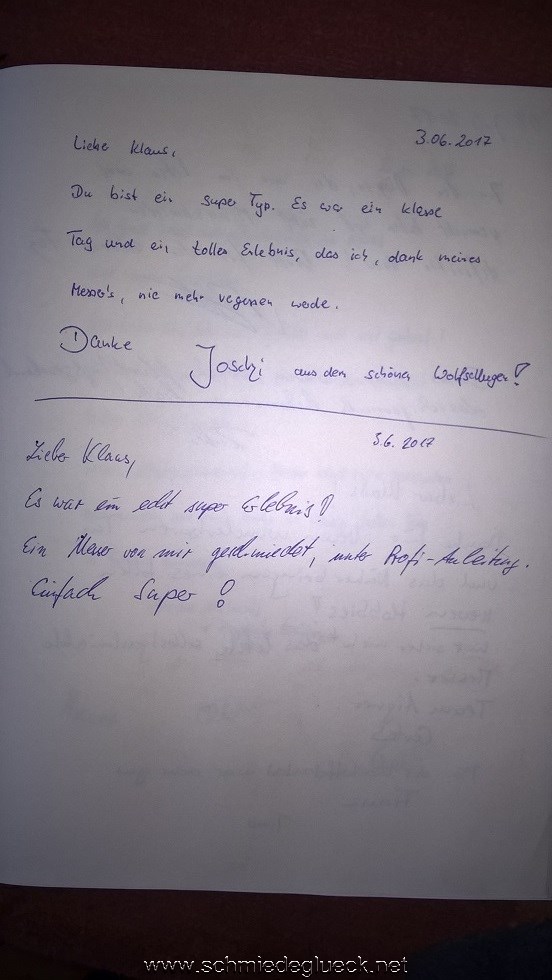 3.06.2017
Liebe Klaus,
Du bist ein super Typ. Es war ein klasse
Tag und ein tolles Erlebnis, das ich, dank meines
Messer's, nie mehr vegessen werde.
Danke
Joschi aus dem schönen Wolfschlugen!
3.6.2017
Lieber Klaus,
Es war ein echt super Erlebnis!
Ein Messer von mir geschmiedet, unter Profi-Anleitung.
Einfach Super!
www.schmiedeglueck.net